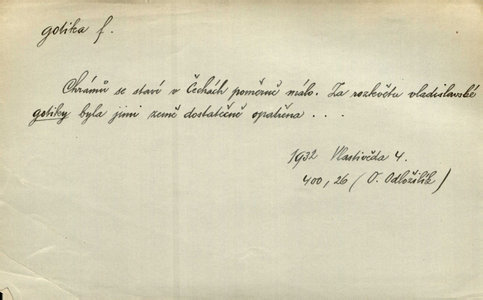 gotika f.
Chrámů se staví v Čechách poměrně málo. Za rozkvětu vladislavské
gotiky byla jimi země dostatečně opatřena . . .
1932 Vlastivěda 4.
400, 26 ( O. Odložilík )